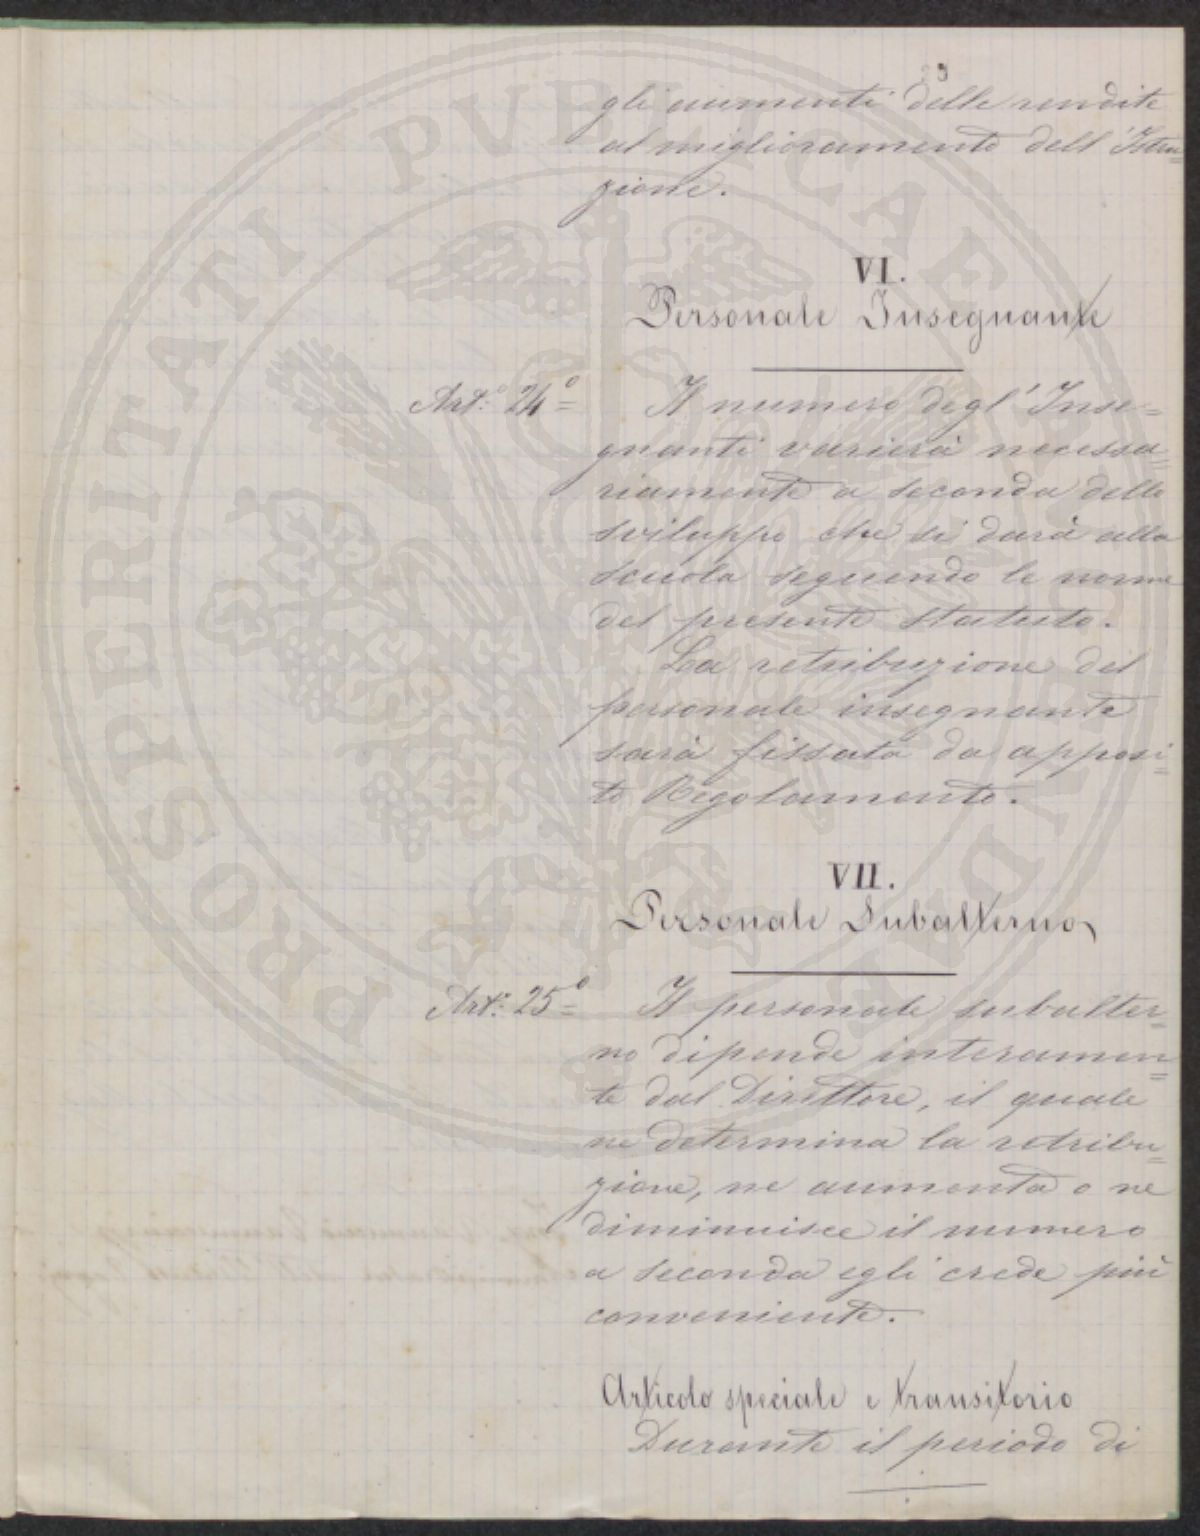 9
gli aumenti delle rendite
al miglioramento dell'Istru=
zione.
VI.
Personale Insegnante
Art.° 24° Il numero degl'Inse=
gnanti varierà necessa=
riamente a seconda dello
sviluppo che si darà alla
scuola seguendo le norme
del presente statuto.
La retribuzione del
personale insegnante
sarà fissata da apposi=
to Regolamento.
VII.
Personale Subalterno
Art.° 25° Il personale subalter=
no dipende interamen=
te dal Direttore, il quale
ne determina la retribu=
zione, ne aumenta o ne
diminuisce il numero
a seconda egli crede più
conveniente.
Articolo speciale e transitorio
Durante il periodo di
PROSPERITATI PUBLICAE